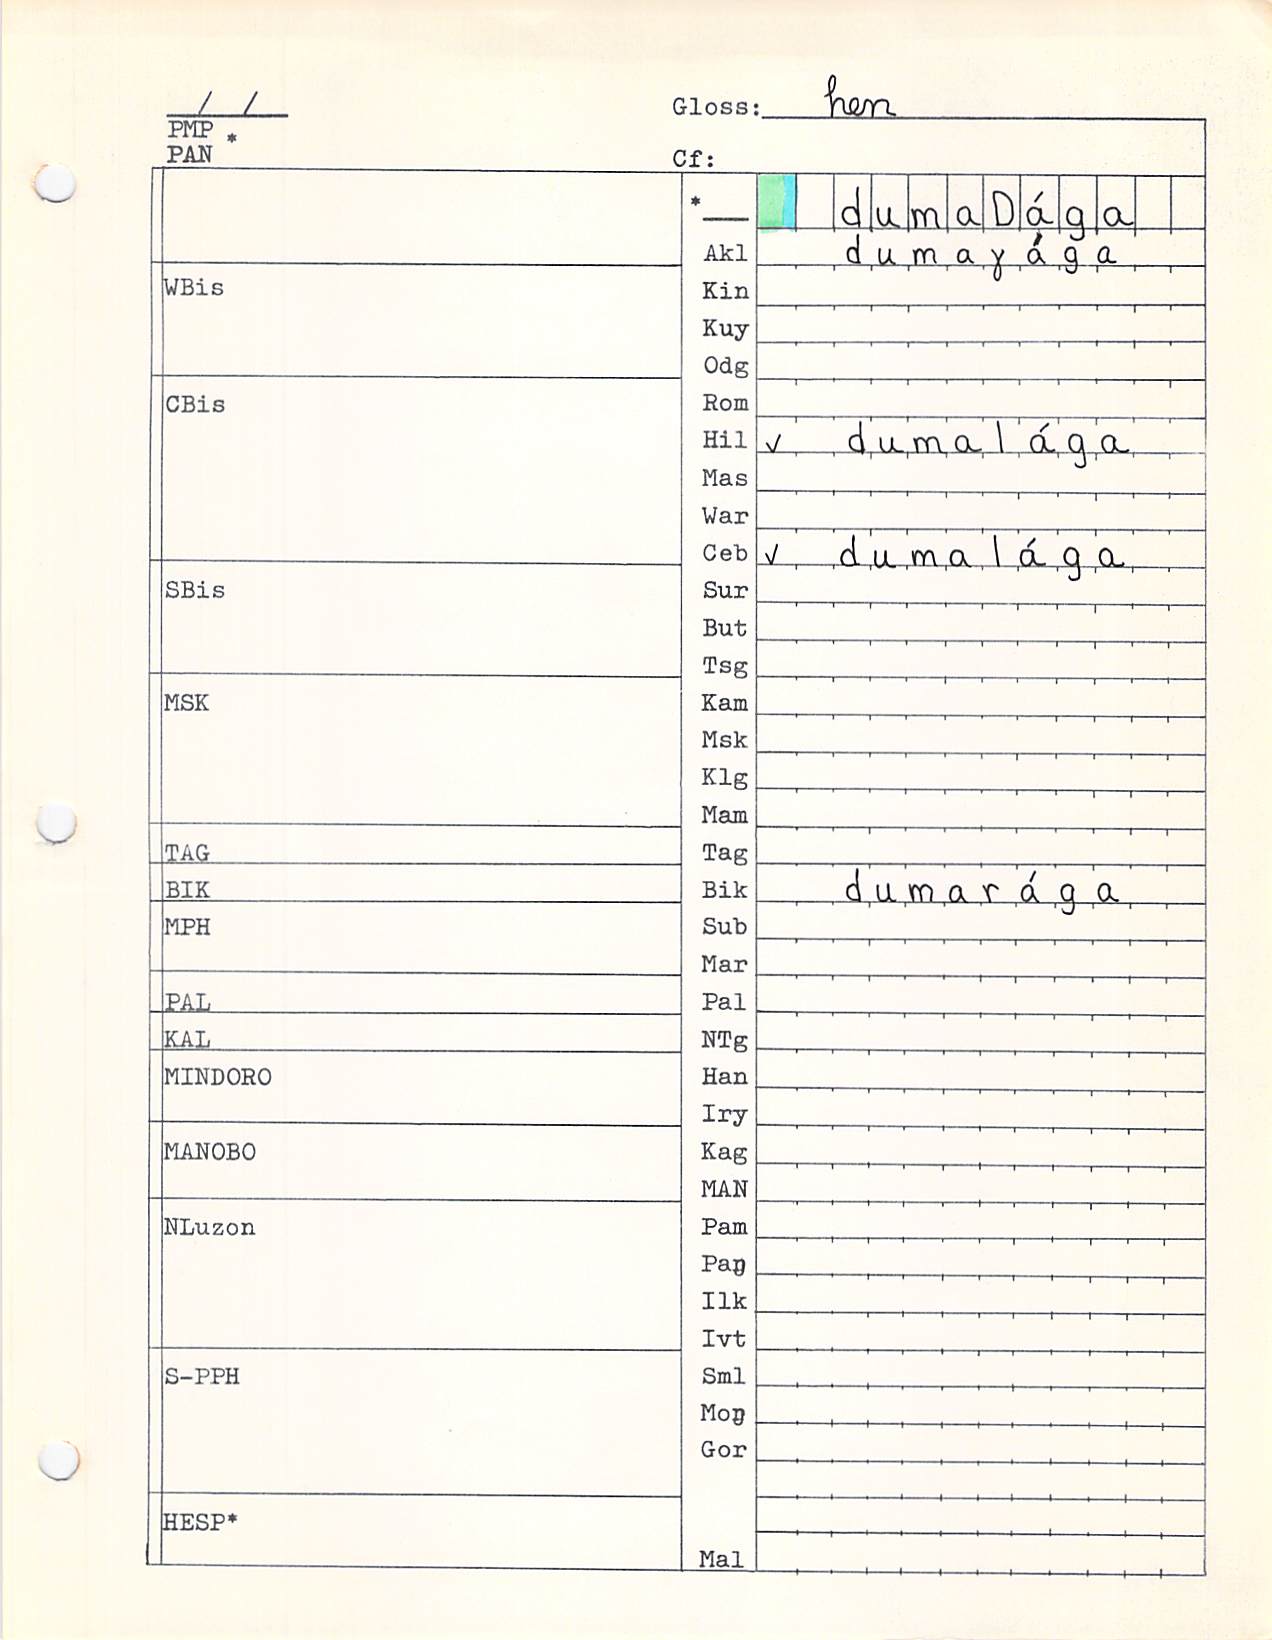 / /
Gloss: hen
PMP *
PAN
Cf:
*__ dumaDága
Akl dumaɣága
WBis
Kin
Kuy
Odg
CBis
Rom
Hil ✓ dumalága
Mas
War
Ceb ✓ dumalága
SBis
Sur
But
Tsg
MSK
Kam
Msk
Klg
Mam
TAG
Tag
BIK
Bik dumarága
MPH
Sub
Mar
PAL
Pal
KAL
NTg
MINDORO
Han
Iry
MANOBO
Kag
MAN
NLuzon
Pam
Paŋ
Ilk
Ivt
S-PPH
Sml
Moŋ
Gor
HESP*
Mal